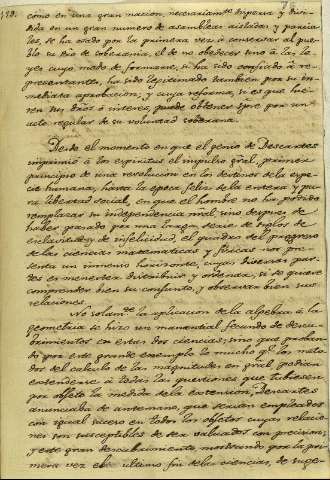 como en una gran nacion, necesariamte dispersa y divi-
dida en un gran numero de asambleas aisladas y parcia-
les, se ha osado por la primera vez, à conservar al pue-
blo su dro de soberania, el de no obedecer sino à las le-
yes cuyo modo de formarse, si ha sido confiado à re-
presentantes, ha sido legitimado tambien por su in-
mediata aprobacion; y cuya reforma, si es que hie-
ren sus dros ò interes, puede obtener spre por un
acto regular de su voluntad soberana.
Desde el momento en que el genio de Descartes
imprimió à los espiritus el impulso gral, primer
principio de una revolucion en los destinos de la espe-
cie humana, hasta la epoca feliz de la entera y pu-
ra libertad social, en que el hombre no ha podido
remplazar su independencia nral, sino despues de
haber pasado por una larga serie de siglos de
esclavitud y de infelicidad, el quadro del progreso
de las ciencias matematicas y fisicas nos pre-
senta un inmenso horizonte, cuyas diversas par-
tes es menester distribuir y ordenar, si se quiere
comprender bien su conjunto, y observar bien sus
relaciones.
No solamte la aplicacion de la algebra à la
geometria se hizo un manantial fecundo de descu-
brimientos en estas dos ciencias; sino que proban-
do por este grande exemplo lo mucho qe los meto-
dos del calculo de las magnitudes en gral podian
estenderse à todas las questiones que tubiesen
por objeto la medida de la estension, Descartes
anunciaba de antemano, que serian empleados
con igual suceso en todos los objetos cuyas relacio-
nes son susceptibles de ser valuados con precision;
y este gran descubrimiento, mostrando por la pri-
mera vez este ultimo fin de las ciencias, de suge-